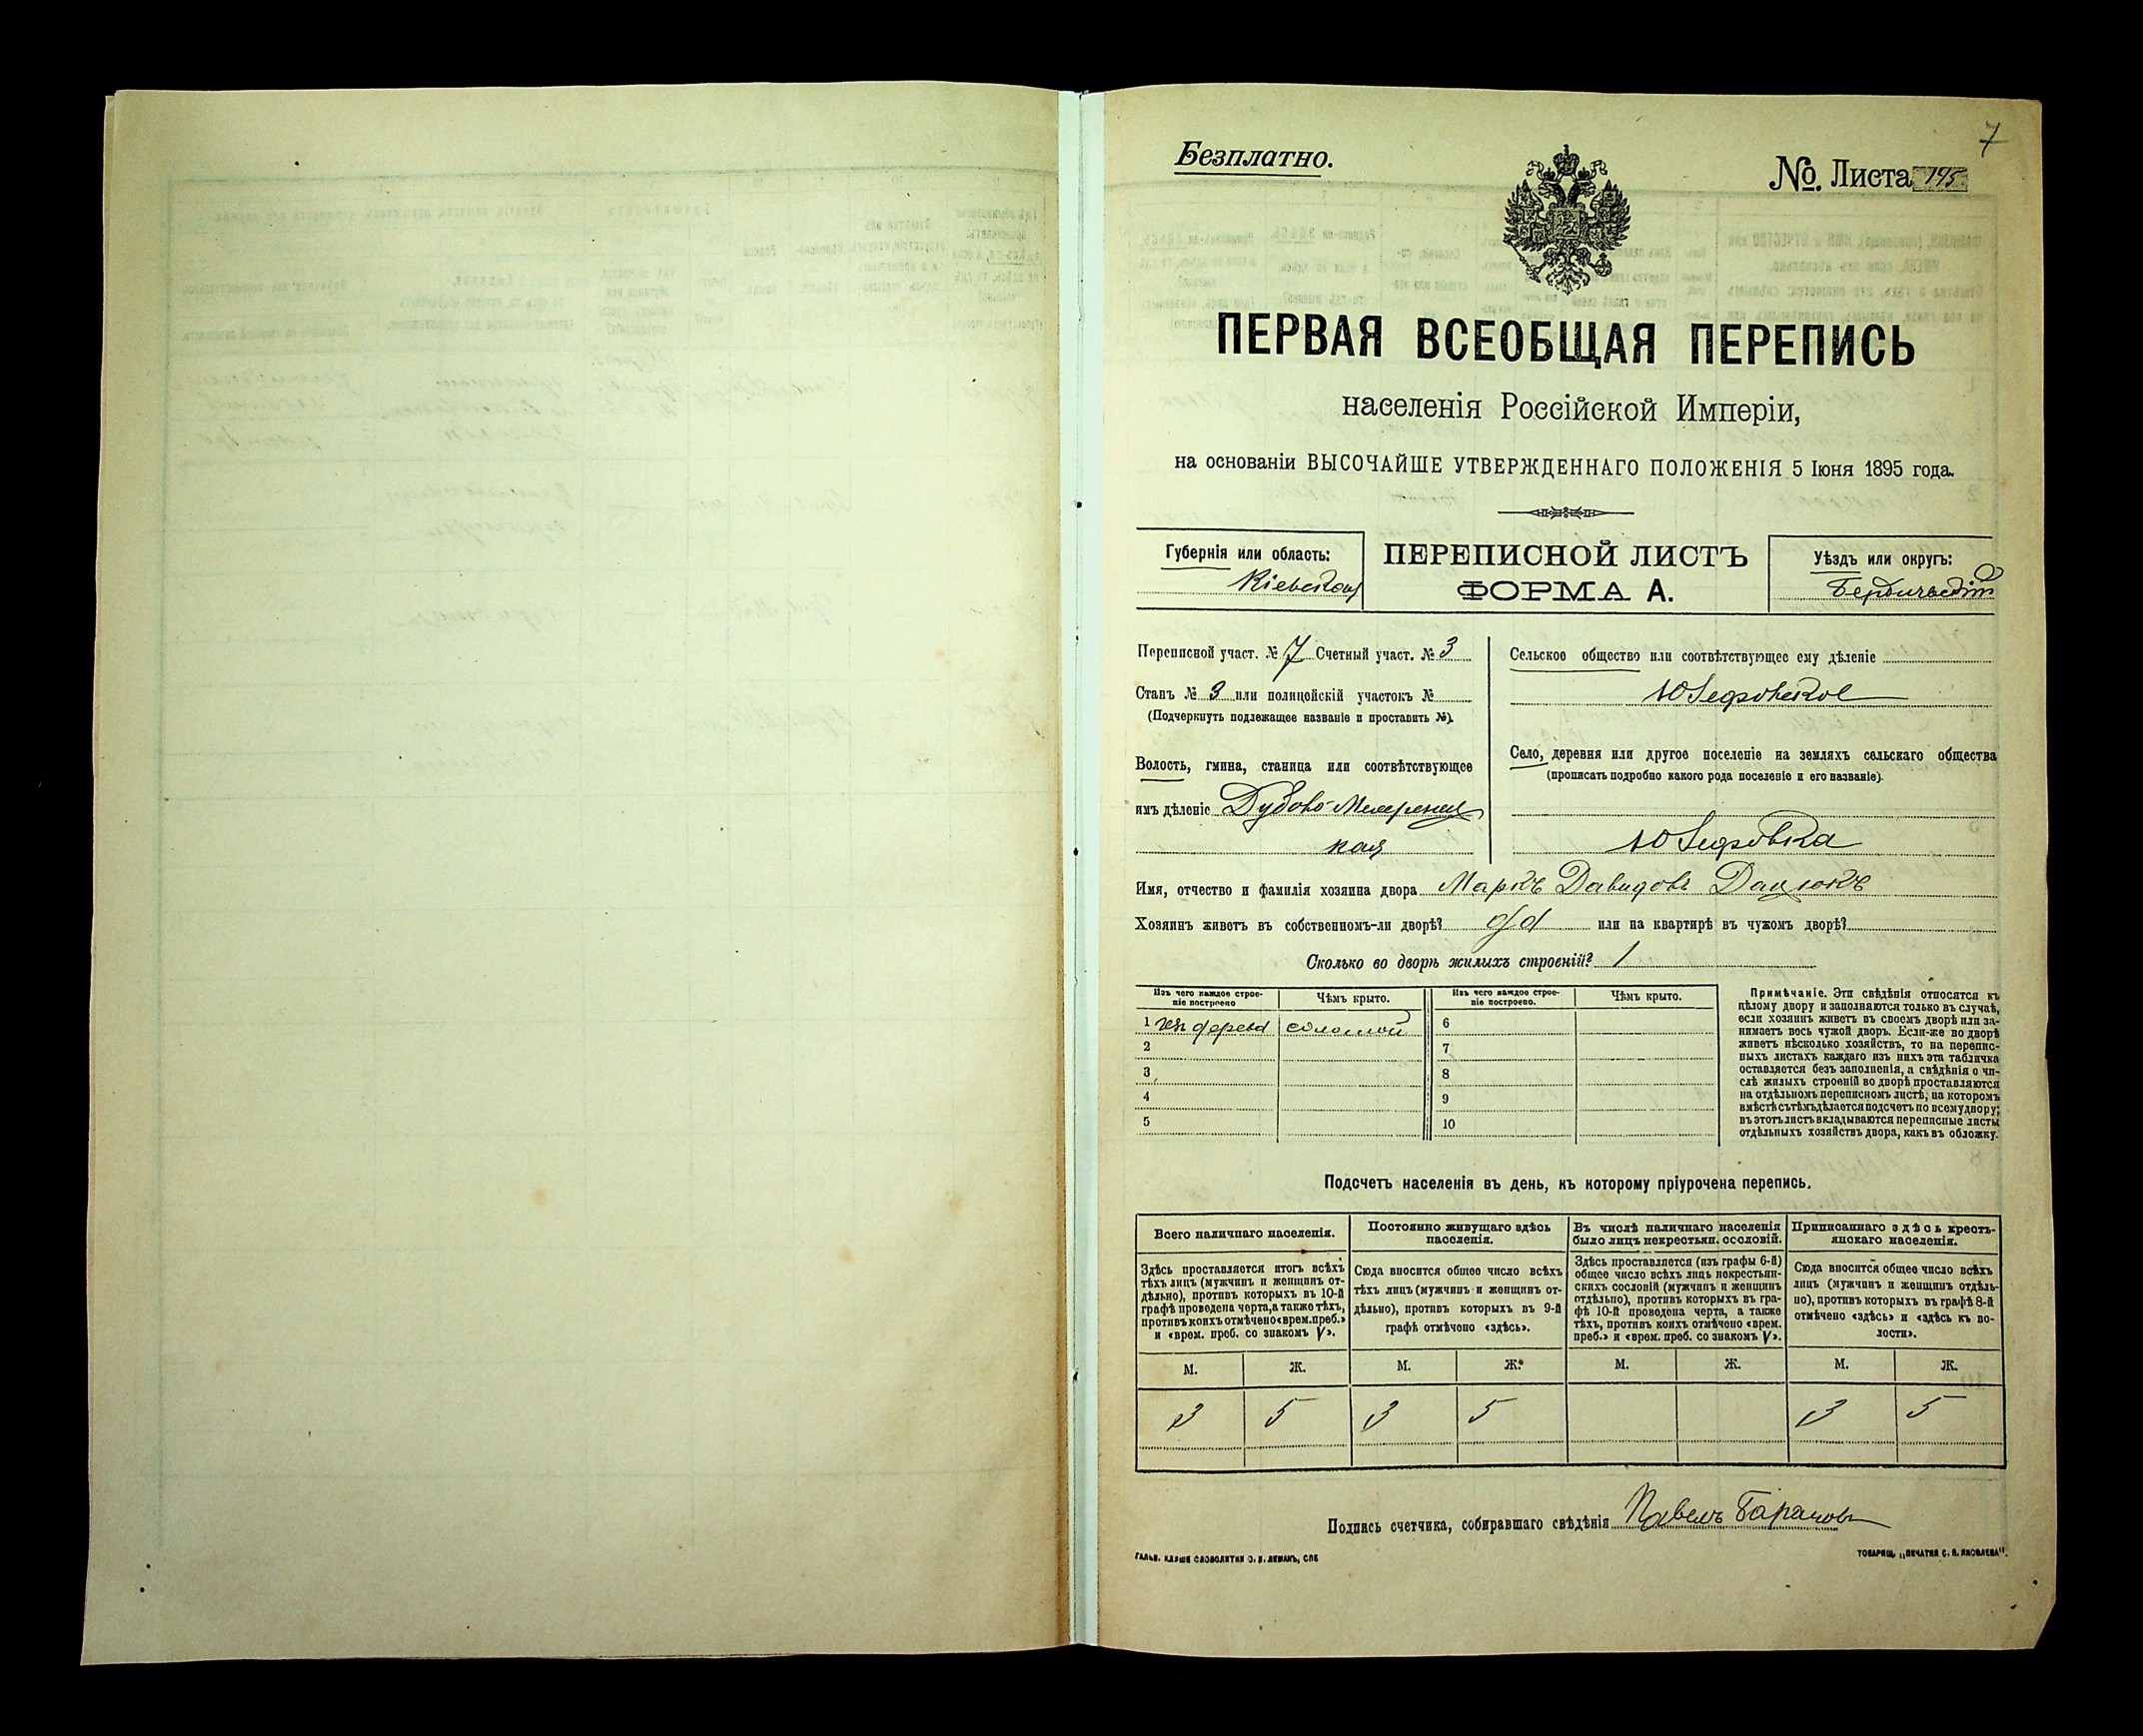 7
Безплатно.
№. Листа 195.
ПЕРВАЯ ВСЕОБЩАЯ ПЕРЕПИСЬ
населенія Россійской Имперіи,
на основаніи ВЫСОЧАЙШЕ УТВЕРЖДЕННАГО ПОЛОЖЕНІЯ 5 Іюня 1895 года.
Губернія или область:
Кіевская
ПЕРЕПИСНОЙ ЛИСТЪ
ФОРМА А.
Уѣздъ или округъ:
Переписной участ. № 7 Счетный участ. № 3
Станъ № 3 или полицейскій участокъ №
(Подчеркнуть подлежащее названіе и проставить №).
Волость, гмина, станица или соотвѣтствующее
имъ дѣленіе Дубово-
кая
Сельское общество или соотвѣтствующее ему дѣленіе
Юзефовское
Село, деревня или другое поселеніе на земляхъ сельскаго общества
(прописать подробно какого рода поселеніе и его названіе).
Юзефовка
Имя, отчество и фамилія хозяина двора Маркъ Давидовъ Дацюкъ
Хозяинъ живетъ въ собственномъ-ли дворѣ? да или на квартирѣ въ чужомъ дворѣ?
Сколько во дворѣ жилыхъ строеній? 1
Изъ чего каждое строе-
ніе построено
Чѣмъ крыто.
Изъ чего каждое строе-
ніе построено.
Чѣмъ крыто.
1 изъ дерева соломой 6
2 7
3 8
4 9
5 10
Примѣчаніе. Эти свѣдѣнія относятся къ
цѣлому двору и заполняются только въ случаѣ,
если хозяинъ живетъ въ своемъ дворѣ или за-
нимаетъ весь чужой дворъ. Если-же во дворѣ
живетъ нѣсколько хозяйствъ, то на перепис-
ныхъ листахъ каждаго изъ нихъ эта табличка
оставляется безъ заполненія, а свѣдѣнія о чи-
слѣ жилыхъ строеній во дворѣ проставляются
на отдѣльномъ переписномъ листѣ, на которомъ
вмѣстѣ съ тѣмъ дѣлается подсчетъ по всему двору;
въ этотъ листъ вкладываются переписные листы
отдѣльныхъ хозяйствъ двора, какъ въ обложку.
Подсчетъ населенія въ день, къ которому пріурочена перепись.
Всего наличнаго населенія.
Постоянно живущаго здѣсь
населенія.
Въ числѣ наличнаго населенія
было лицъ некрестьян. сословій.
Приписаннаго здѣсь кресть-
янскаго населенія.
Здѣсь проставляется итогъ всѣхъ
тѣхъ лицъ (мужчинъ и женщинъ от-
дѣльно), противъ которыхъ въ 10-й
графѣ проведена черта, а также тѣхъ,
противъ коихъ отмѣчено «врем. преб.»
и «врем. преб. со знакомъ V».
Сюда вносится общее число всѣхъ
тѣхъ лицъ (мужчинъ и женщинъ от-
дѣльно), противъ которыхъ въ 9-й
графѣ отмѣчено «здѣсь».
Здѣсь проставляется (изъ графы 6-й)
общее число всѣхъ лицъ некрестьян-
скихъ сословій (мужчинъ и женщинъ
отдѣльно), противъ которыхъ въ гра-
фѣ 10-й проведена черта, а также
тѣхъ, противъ коихъ отмѣчено «врем.
преб.» и «врем. преб. со знакомъ V».
Сюда вносится общее число всѣхъ
лицъ (мужчинъ и женщинъ отдѣль-
но), противъ которыхъ въ графѣ 8-й
отмѣчено «здѣсь» и «здѣсь къ во-
лости».
М. Ж. М. Ж. М. Ж. М. Ж.
3 5 3 5 3 5
Подпись счетчика, собиравшаго свѣдѣнія Павелъ Барановъ
ГАЛЬВ. КЛИШЕ СЛОВОЛИТНИ О. И. ЛЕМАНЪ, СПБ
ТОВАРИЩ. „ПЕЧАТНЯ С. П. ЯКОВЛЕВА".